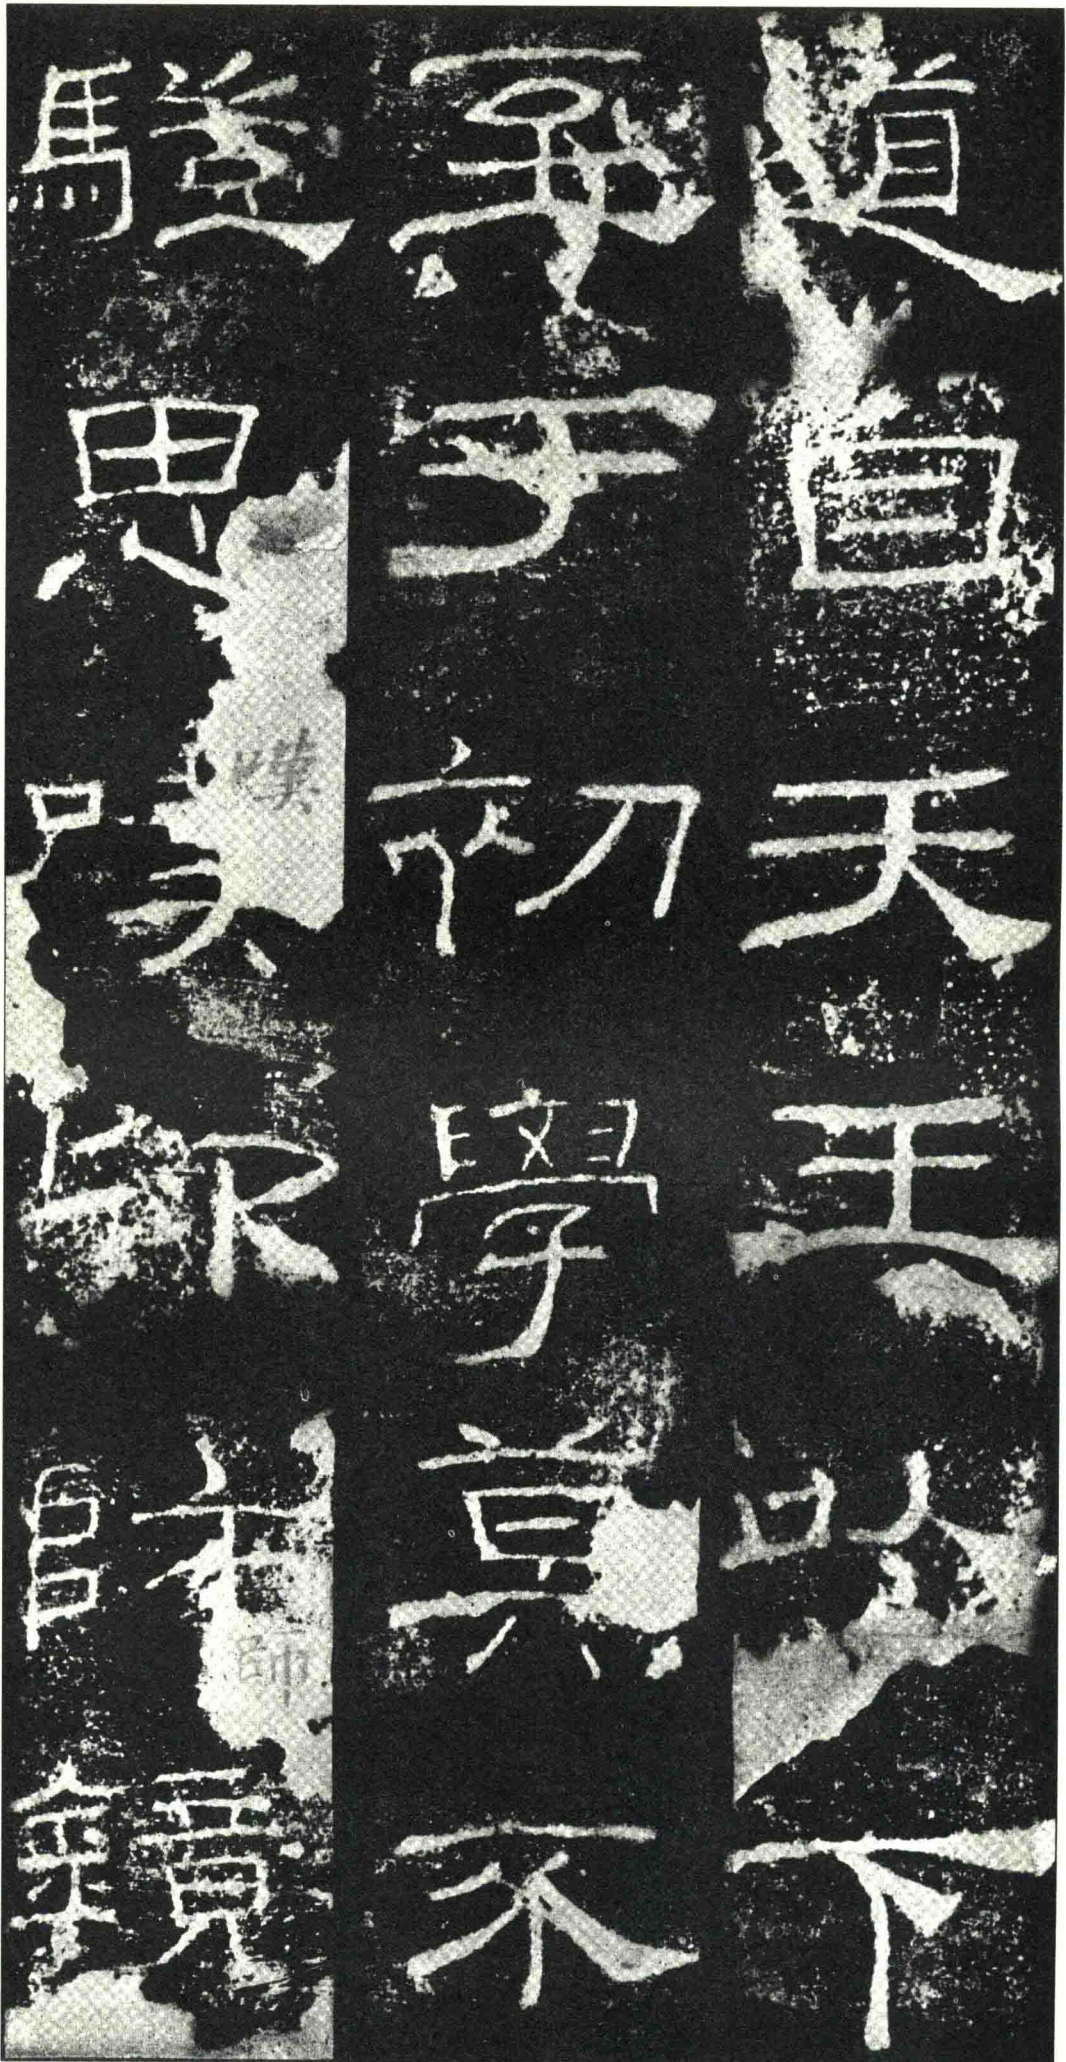 道自天王以下
至于初學莫不
驥思嘆卬師鏡
嘆
師